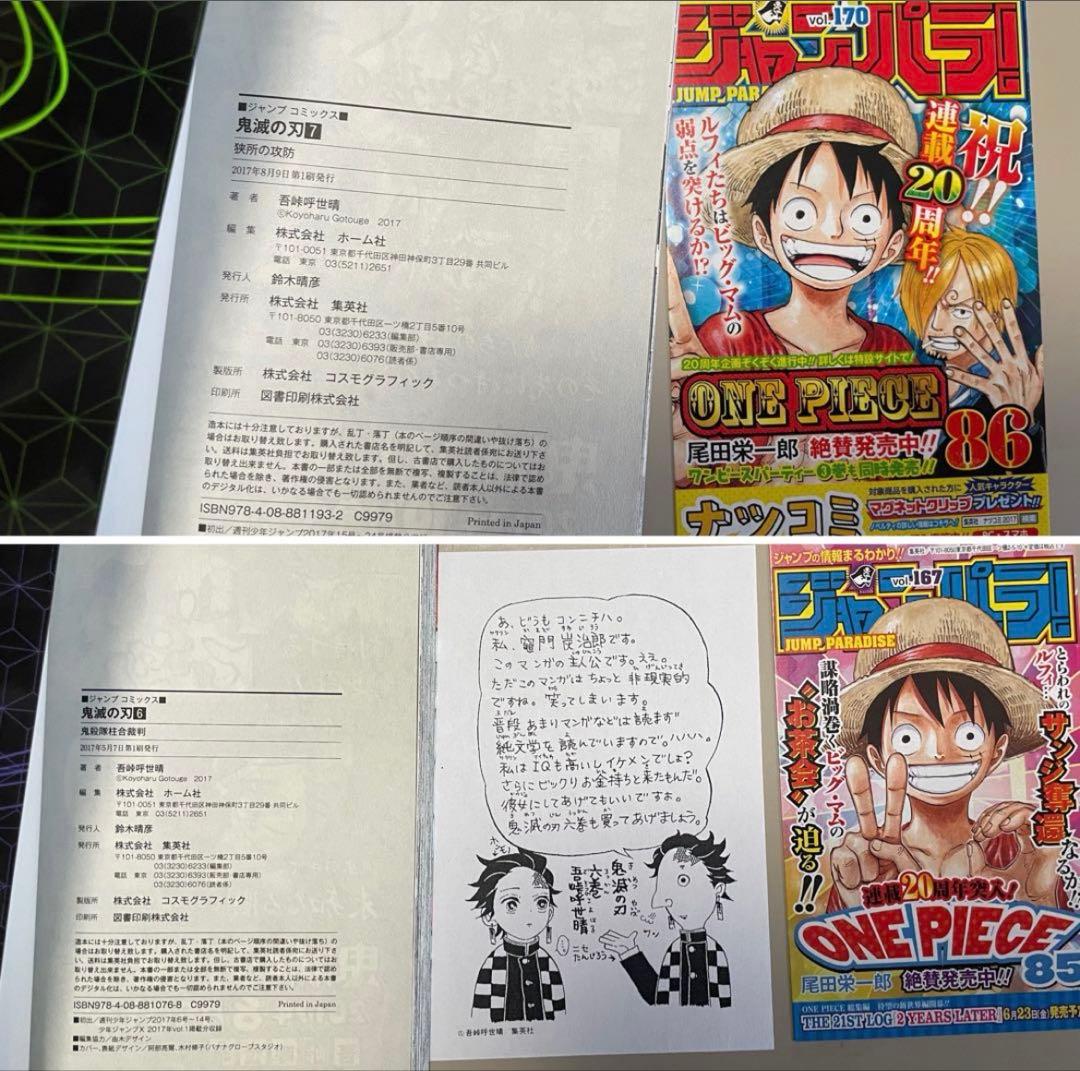 ■ジャンプ コミックス■
鬼滅の刃7
狭所の攻防
2017年8月9日第1刷発行
著者 吾峠呼世晴
©Koyoharu Gotouge 2017
編集 株式会社 ホーム社
〒101-0051 東京都千代田区神田神保町3丁目29番 共同ビル
電話 東京 03(5211)2651
発行人 鈴木晴彦
発行所 株式会社 集英社
〒101-8050 東京都千代田区一ツ橋2丁目5番10号
03(3230)6233(編集部)
電話 東京 03(3230)6393(販売部・書店専用)
03(3230)6076(読者係)
製版所 株式会社 コスモグラフィック
印刷所 図書印刷株式会社
造本には十分注意しておりますが、乱丁・落丁(本のページ順序の間違いや抜け落ち)の
場合はお取り替え致します。購入された書店名を明記して、集英社読者係宛にお送り下さ
い。送料は集英社負担でお取り替え致します。但し、古書店で購入したものについてはお
取り替え出来ません。本書の一部または全部を無断で複写、複製することは、法律で認め
られた場合を除き、著作権の侵害となります。また、業者など、読者本人以外による本書
のデジタル化は、いかなる場合でも一切認められませんのでご注意下さい。
ISBN978-4-08-881193-2 C9979
Printed in Japan
■初出/週刊少年ジャンプ2017年15号~24号掲載分収録
vol.170
ジャンパラ!
JUMP PARADISE
祝!!
連載20周年!!
ルフィたちはビッグ・マムの
弱点を突けるか!?
20周年企画ぞくぞく進行中!!詳しくは特設サイトで!
ONE PIECE
86
尾田栄一郎 絶賛発売中!!
ワンピースパーティー③巻も同時発売!!
対象商品を購入された方に 人気キャラクター
マグネットクリップ プレゼント!!
ナツコミ
■ジャンプ コミックス■
鬼滅の刃6
鬼殺隊柱合裁判
2017年5月7日第1刷発行
著者 吾峠呼世晴
©Koyoharu Gotouge 2017
編集 株式会社 ホーム社
〒101-0051 東京都千代田区神田神保町3丁目29番 共同ビル
電話 東京 03(5211)2651
発行人 鈴木晴彦
発行所 株式会社 集英社
〒101-8050 東京都千代田区一ツ橋2丁目5番10号
03(3230)6233(編集部)
電話 東京 03(3230)6393(販売部・書店専用)
03(3230)6076(読者係)
製版所 株式会社 コスモグラフィック
印刷所 図書印刷株式会社
造本には十分注意しておりますが、乱丁・落丁(本のページ順序の間違いや抜け落ち)の
場合はお取り替え致します。購入された書店名を明記して、集英社読者係宛にお送り下さ
い。送料は集英社負担でお取り替え致します。但し、古書店で購入したものについてはお
取り替え出来ません。本書の一部または全部を無断で複写、複製することは、法律で認め
られた場合を除き、著作権の侵害となります。また、業者など、読者本人以外による本書
のデジタル化は、いかなる場合でも一切認められませんのでご注意下さい。
ISBN978-4-08-881076-8 C9979
Printed in Japan
■初出/週刊少年ジャンプ2017年6号~14号、
少年ジャンプX 2017年vol.1掲載分収録
■編集協力/由木デザイン
■カバー、表紙デザイン/阿部亮爾、木村修子(バナナグローブスタジオ)
あ、どうも コンニチハ。
私、竈門炭治郎です。
このマンガの主人公です。ええ。
ただこのマンガは ちょっと 非現実的
ですね。笑ってしまいます。
普段あまりマンガなどは読まず
純文学を読んでいますので。ハハハ。
私はIQも高いしイケメンでしょ?
さらにビックリお釜持ちと来たもんだ。
彼女にしてあげてもいいですよ。
鬼滅の刃六巻も買ってあげましょう。
ホンモノ
鬼滅の刃
六巻
吾峠呼世晴
ニセ
たんじろう
©吾峠呼世晴 集英社
ジャンプの情報まるわかり!!
vol.167
ジャンパラ!
JUMP PARADISE
とらわれの
ルフィ…
サンジ奪還なるか!?
謀略渦巻くビッグ・マムの
“お茶会”が迫る!!
連載20周年突入!
ONE PIECE
85
尾田栄一郎 絶賛発売中!!
ONE PIECE 総集編 待望の新世界編開幕!!
THE 21ST LOG 2 YEARS LATER 6月23日(金)発売予定